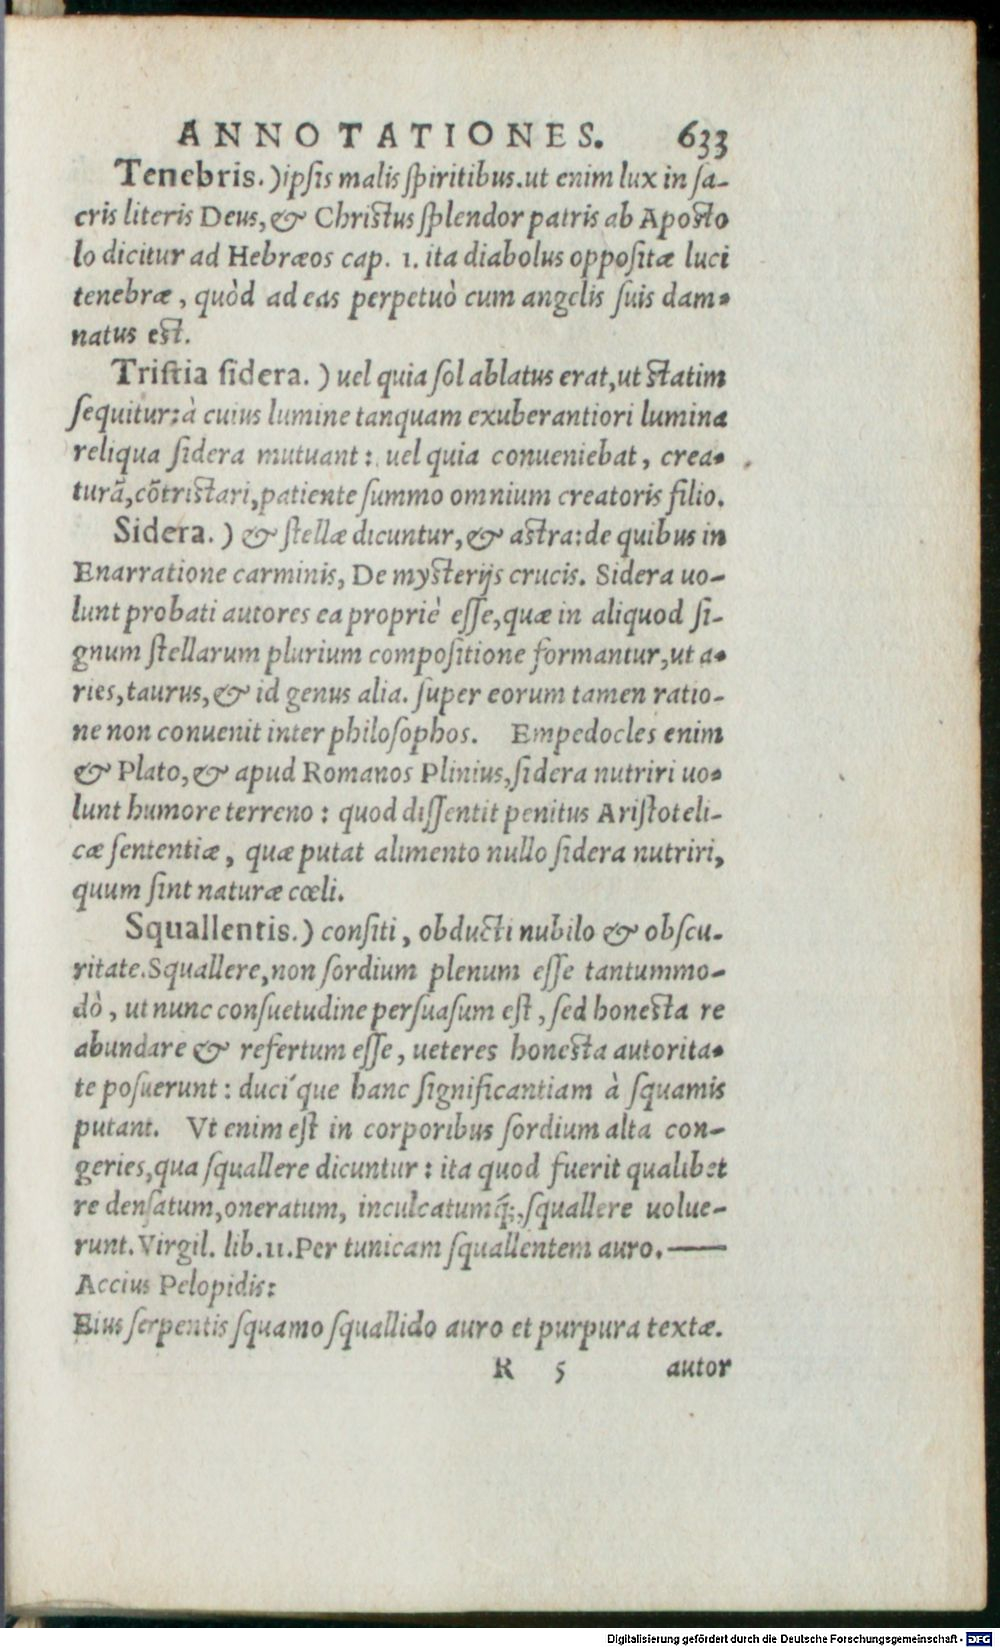 ANNOTATIONES. 633
Tenebris.) ipſis malis ſpiritibus. ut enim lux in ſa-
cris literis Deus, & Chriſtus ſplendor patris ab Apoſto
lo dicitur ad Hebræos cap. 1. ita diabolus oppoſitæ luci
tenebræ, quòd ad eas perpetuò cum angelis ſuis dam-
natus eſt.
Triſtia ſidera.) uel quia ſol ablatus erat, ut ſtatim
ſequitur: à cuius lumine tanquam exuberantiori lumina
reliqua ſidera mutuant: uel quia conueniebat, crea-
turã, cõtriſtari, patiente ſummo omnium creatoris filio.
Sidera.) & ſtellæ dicuntur, & aſtra: de quibus in
Enarratione carminis, De myſterijs crucis. Sidera uo-
lunt probati autores ea propriè eſſe, quæ in aliquod ſi-
gnum ſtellarum plurium compoſitione formantur, ut a-
ries, taurus, & id genus alia. ſuper eorum tamen ratio-
ne non conuenit inter philoſophos. Empedocles enim
& Plato, & apud Romanos Plinius, ſidera nutriri uo-
lunt humore terreno: quod diſſentit penitus Ariſtoteli-
cæ ſententiæ, quæ putat alimento nullo ſidera nutriri,
quum ſint naturæ cœli.
Squallentis.) conſiti, obducti nubilo & obſcu-
ritate. Squallere, non ſordium plenum eſſe tantummo-
dò, ut nunc conſuetudine perſuaſum eſt, ſed honeſta re
abundare & refertum eſſe, ueteres honeſta autorita-
te poſuerunt: duci´que hanc ſignificantiam à ſquamis
putant. Vt enim eſt in corporibus ſordium alta con-
geries, qua ſquallere dicuntur: ita quod fuerit qualibet
re denſatum, oneratum, inculcatumq́;, ſquallere uolue-
runt. Virgil. lib. 11. Per tunicam ſquallentem auro. —
Accius Pelopidis:
Eius ſerpentis ſquamo ſquallido auro et purpura textæ.
R 5 autor
Digitalisierung gefördert durch die Deutsche Forschungsgemeinschaft - DFG